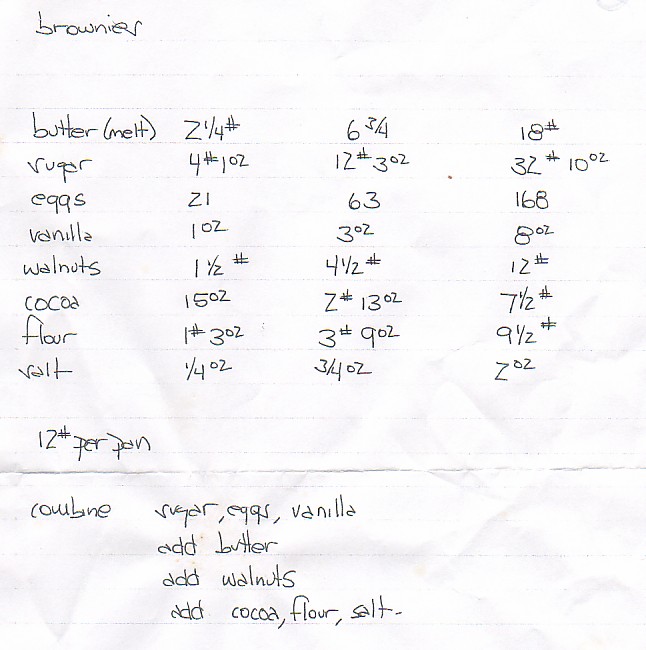 brownies
butter (melt) 2 1/4# 6 3/4 18#
sugar 4# 1oz 12# 3oz 32# 10oz
eggs 21 63 168
vanilla 1oz 3oz 8oz
walnuts 1 1/2 # 4 1/2# 12#
cocoa 15oz 2# 13oz 7 1/2#
flour 1# 3oz 3# 9oz 9 1/2#
salt 1/4oz 3/4oz 2oz
12# per pan
combine sugar, eggs, vanilla
add butter
add walnuts
add cocoa, flour, salt.